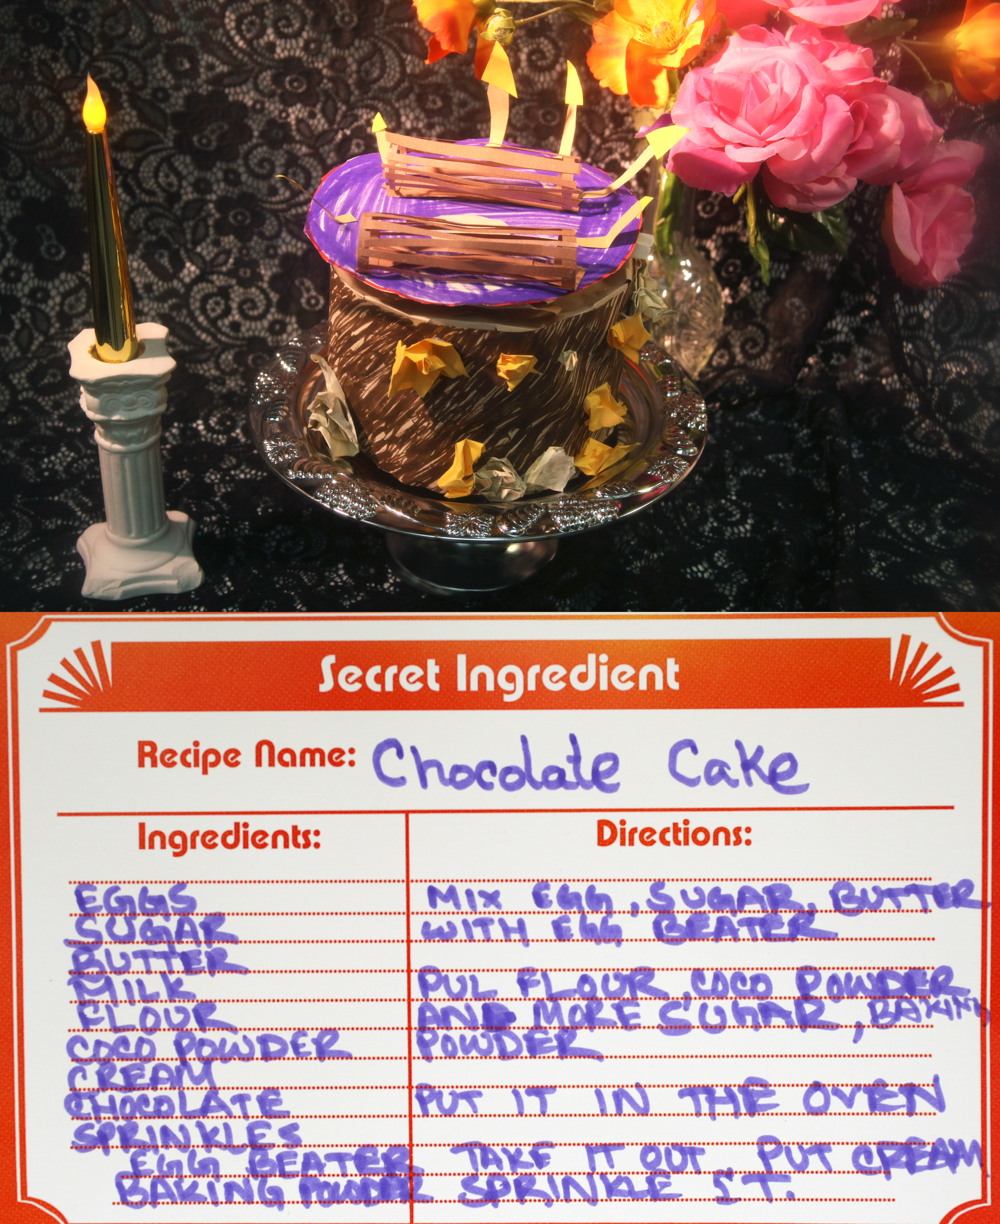 Secret Ingredient
Recipe Name: Chocolate Cake
Ingredients:
EGGS
SUGAR
BUTTER
MILK
FLOUR
COCO POWDER
CREAM
CHOCOLATE
SPRINKLES
EGG BEATER
BAKING POWDER
Directions:
MIX EGG, SUGAR, BUTTER
WITH EGG BEATER
PUL FLOUR, COCO POWDER
AND MORE SUGAR, BAKING
POWDER
PUT IT IN THE OVEN
TAKE IT OUT, PUT CREAM
SPRINKLE